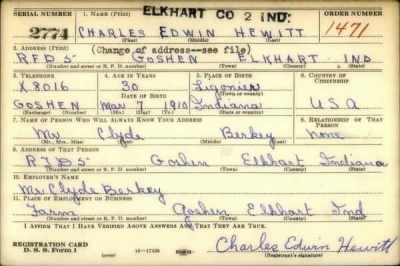 ELKHART CO 2 IND:
SERIAL NUMBER 1. NAME (Print) ORDER NUMBER
2774 CHARLES EDWIN HEWITT 1471
(First) (Middle) (Last)
2. ADDRESS (Print) (Change of address--see file)
R.F.D 5 GOSHEN ELKHART IND.
(Number and street or R. F. D. number) (Town) (County) (State)
3. TELEPHONE 4. AGE IN YEARS 5. PLACE OF BIRTH 6. COUNTRY OF CITIZENSHIP
X8016 30 Ligonier
DATE OF BIRTH (Town or county)
GOSHEN Mar 7 1910 Indiana USA
(Exchange) (Mo.) (Day) (Yr.) (State or country)
7. NAME OF PERSON WHO WILL ALWAYS KNOW YOUR ADDRESS 8. RELATIONSHIP OF THAT PERSON
Mr Clyde Berkey none
(Mr., Mrs., Miss) (First) (Middle) (Last)
9. ADDRESS OF THAT PERSON
RFD5 Goshen Elkhart Indiana
(Number and street or R. F. D. number) (Town) (County) (State)
10. EMPLOYER'S NAME
Mr Clyde Berkey
11. PLACE OF EMPLOYMENT OR BUSINESS
Farm Goshen Elkhart Ind
(Number and street or R. F. D. number) (Town) (County) (State)
I AFFIRM THAT I HAVE VERIFIED ABOVE ANSWERS AND THAT THEY ARE TRUE.
REGISTRATION CARD
D. S. S. Form 1 16—17105 Charles Edwin Hewitt
(Registrant's signature)